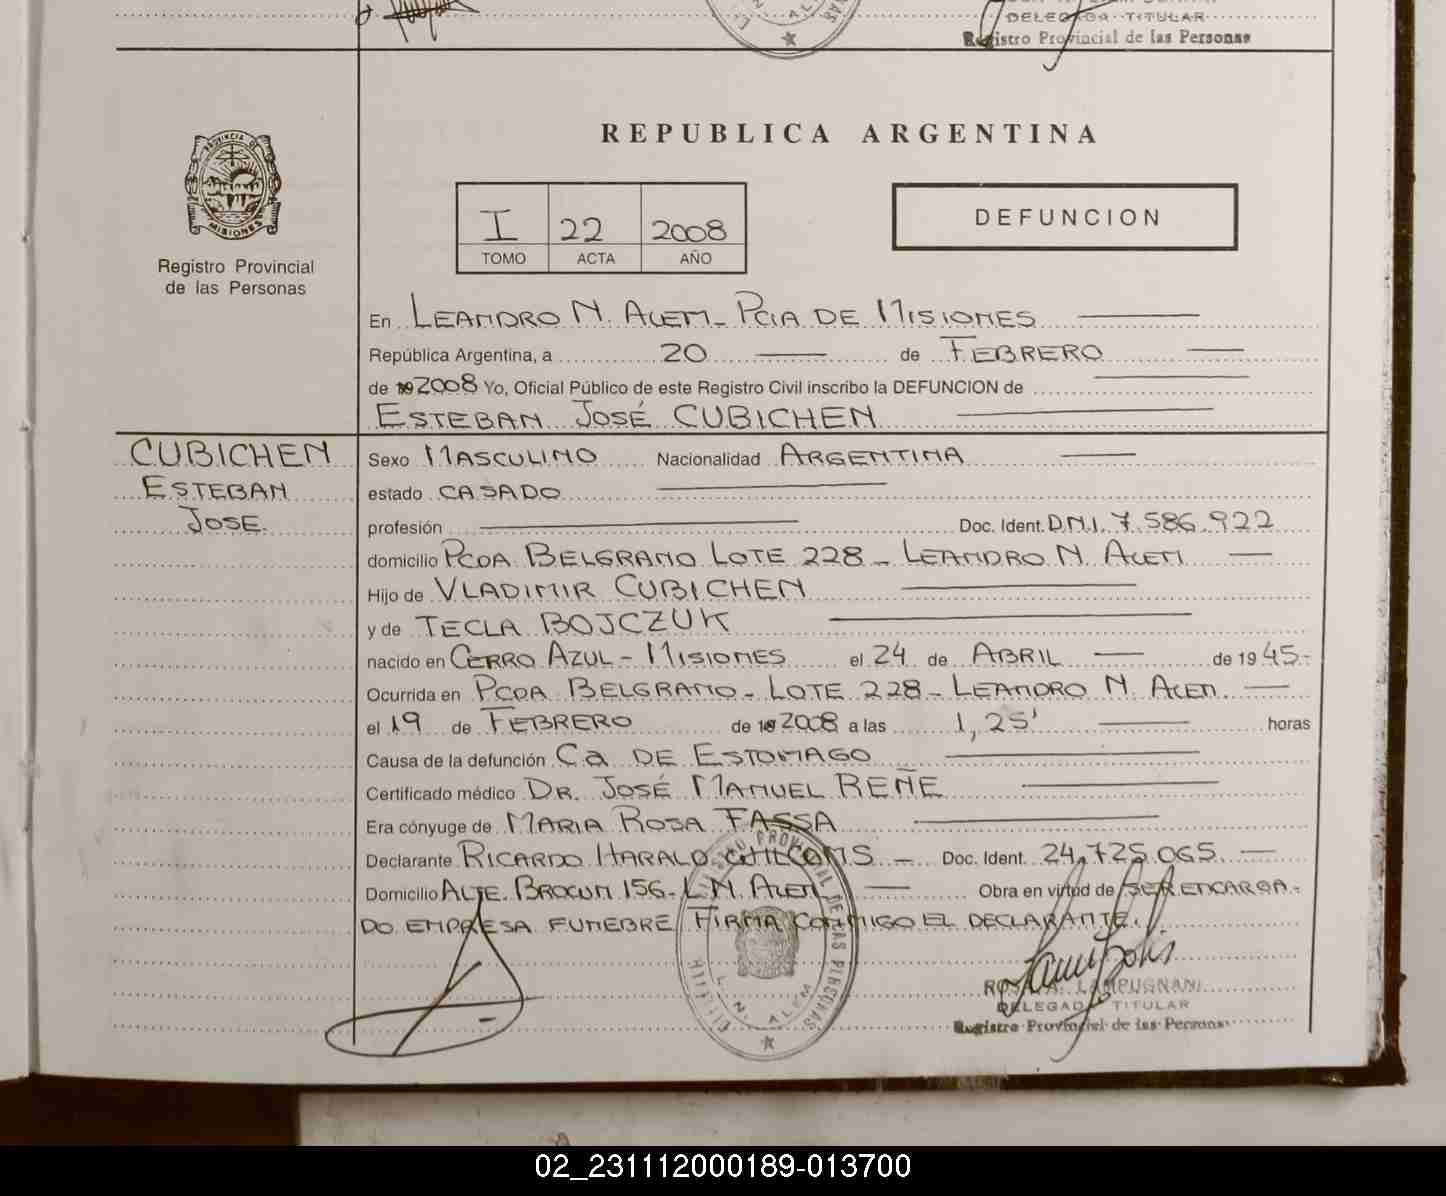 DELEGADA TITULAR
Registro Provincial de las Personas
PROVINCIA DE
MISIONES
Registro Provincial
de las Personas
REPUBLICA ARGENTINA
I 22 2008
TOMO ACTA AÑO
DEFUNCION
En LEANDRO N. ALEM - PCIA DE MISIONES
República Argentina, a 20 de FEBRERO
de 19 2008 Yo, Oficial Público de este Registro Civil inscribo la DEFUNCION de
ESTEBAN JOSÉ CUBICHEN
CUBICHEN
ESTEBAN
JOSE.
Sexo MASCULINO Nacionalidad ARGENTINA
estado CASADO
profesión Doc. Ident. D.N.I. 7.586.922
domicilio PCOA BELGRANO LOTE 228 - LEANDRO N. ALEM
Hijo de VLADIMIR CUBICHEN
y de TECLA BOJCZUK
nacido en CERRO AZUL - MISIONES el 24 de ABRIL de 19 45.-
Ocurrida en PCOA BELGRANO - LOTE 228 - LEANDRO N. ALEM.
el 19 de FEBRERO de 19 2008 a las 1,25' horas
Causa de la defunción Ca DE ESTOMAGO
Certificado médico DR. JOSÉ MANUEL REÑE
Era cónyuge de MARIA ROSA FASSA
Declarante RICARDO HARALD - Doc. Ident. 24.725.065
Domicilio ALTE. BROWN 156 - L.N. ALEM Obra en virtud de SER ENCARGA-
DO EMPRESA FUNEBRE FIRMA CONMIGO EL DECLARANTE.
REGISTRO PROVINCIAL DE LAS PERSONAS
L. N. ALEM
ROSA A. LAMPUGNANI
DELEGADA TITULAR
Registro Provincial de las Personas
02_231112000189-013700